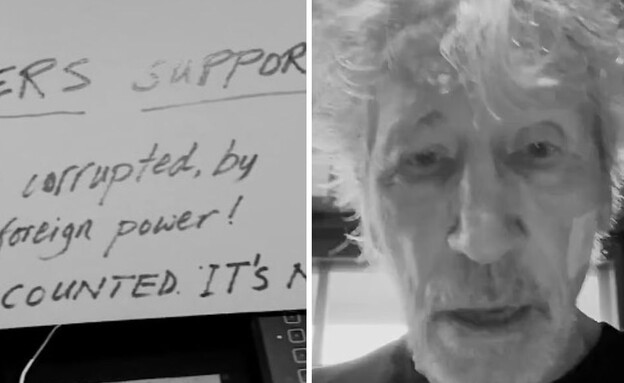 ERS SUPPOR
corrupted, by
foreign power!
COUNTED. IT'S N